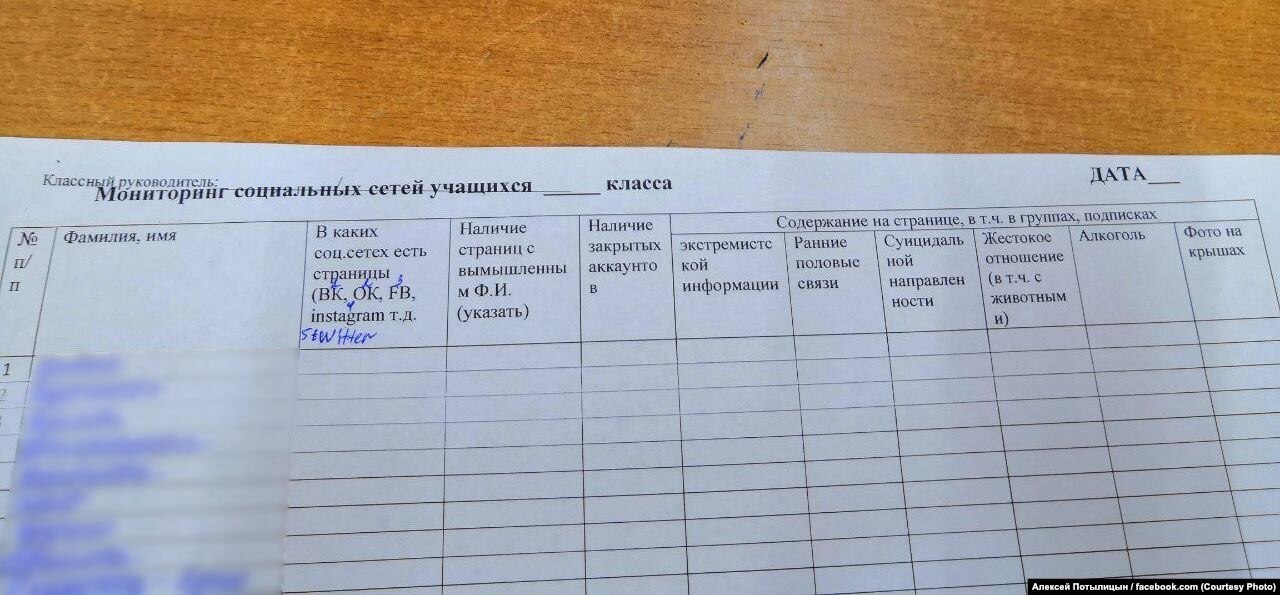 Классный руководитель:
Мониторинг социальных сетей учащихся ______ класса
ДАТА___
№
п/
п
Фамилия, имя
В каких
соц.сетех есть
страницы
(ВК, ОК, FB,
instagram т.д.
5 twitter
Наличие
страниц с
вымышленны
м Ф.И.
(указать)
Наличие
закрытых
аккаунто
в
Содержание на странице, в т.ч. в группах, подписках
экстремистс
кой
информации
Ранние
половые
связи
Суицидаль
ной
направлен
ности
Жестокое
отношение
(в т.ч. с
животным
и)
Алкоголь
Фото на
крышах
1
2
3
Алексей Потылицын / facebook.com (Courtesy Photo)